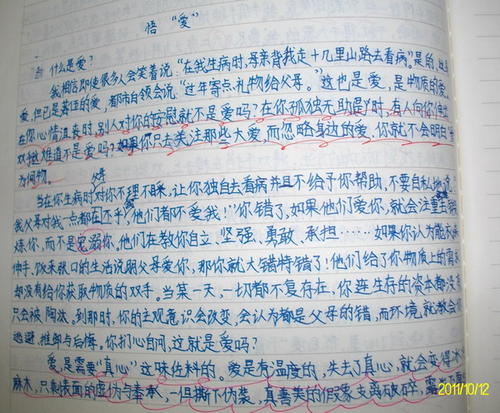 悟 “爱”
什么是爱?
我相信即使很多人会笑着说:“在我生病时,爸亲背我走十几里山路去看病”是的,这
爱,但已是甚证的爱,都市白领会说:“过年寄点礼物给父母。”这也是爱,是物质的爱
在你心情沮丧时,别人对你的安慰就不是爱吗?在你孤独无助时,有人向你伸出
双手难道不是爱吗?如果你只去关注那些大爱,而忽略身边的爱,你就不会明白
为何物。
当在你生病时父母对你不理不睬,让你独自去看病并且不给予你帮助,不要自私地说:
我父母对我一点都在不乎,他们都不爱我!”你错了,如果他们爱你,就会注重去锻
炼你,而不是宠溺你,他们在教你自立、坚强、勇敢、承担……如果你认为能衣来
伸手,饭来张口的生活说明父母爱你,那你就大错特错了:他们给了你物质上的富
却没有给你获取物质的双手。当某一天,一切都不复存在,你连生存的资本都没有
只会被淘汰。到那时,你的主观意识会改变,会认为都是父母的错,而环境就教会你
逃避、推卸与后悔,你扪心自问,这就是爱吗?
爱,是需要“真心”这味佐料的。爱是有温度的,失去了真心,就会变得冰
麻木,只剩表面的虚伪与奉承,一但撕下伪装,真善美的假象支离破碎,露
2011/10/12